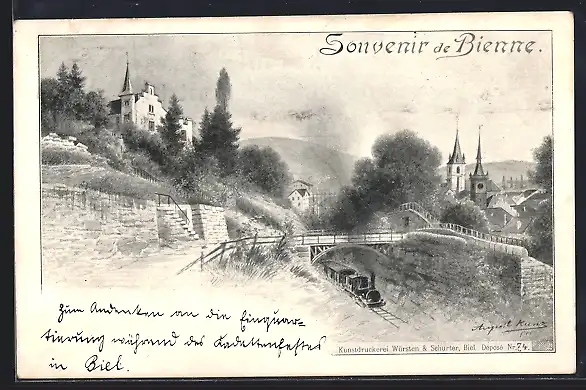 Souvenir de Bienne.
August Kunz
Kunstdruckerei Würsten & Schürter, Biel. Deposé Nr. 74.
Zum Andenken an die Einquar-
tierung während des Kadettenfestes
in Biel.